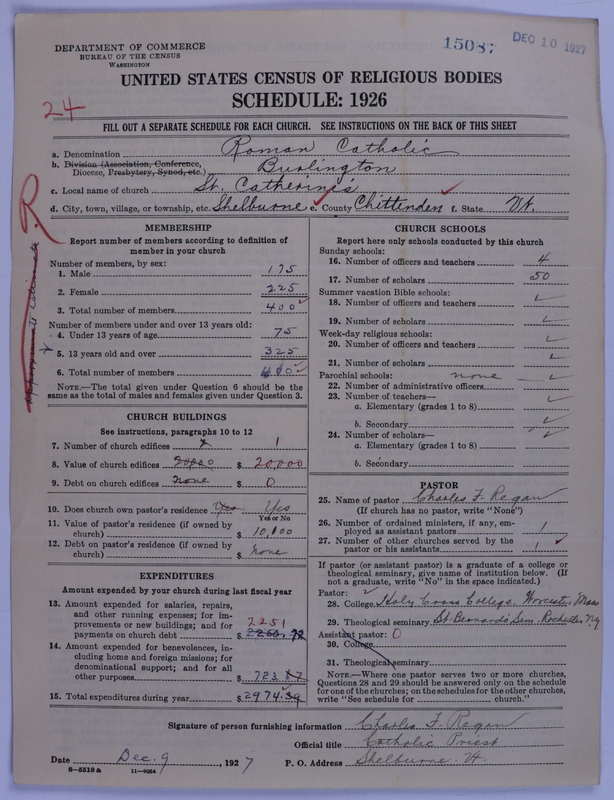 15087
DEC 10 1927
DEPARTMENT OF COMMERCE
BUREAU OF THE CENSUS
WASHINGTON
UNITED STATES CENSUS OF RELIGIOUS BODIES
SCHEDULE: 1926
24
FILL OUT A SEPARATE SCHEDULE FOR EACH CHURCH. SEE INSTRUCTIONS ON THE BACK OF THIS SHEET
a. Denomination Roman Catholic
b. Division (Association, Conference,
Diocese, Presbytery, Synod, etc.) Burlington
c. Local name of church St. Catherine's
d. City, town, village, or township, etc. Shelburne e. County Chittenden f. State Vt.
R
MEMBERSHIP
Report number of members according to definition of
member in your church
Number of members, by sex:
1. Male 175
2. Female 225
3. Total number of members 400
Number of members under and over 13 years old:
4. Under 13 years of age 75
5. 13 years old and over 325
6. Total number of members 400
NOTE.—The total given under Question 6 should be the
same as the total of males and females given under Question 3.
CHURCH BUILDINGS
See instructions, paragraphs 10 to 12
7. Number of church edifices 1
8. Value of church edifices $ 20000
9. Debt on church edifices none $ 0
10. Does church own pastor's residence? Yes Yes
Yes or No
11. Value of pastor's residence (if owned by
church) $ 10,000
12. Debt on pastor's residence (if owned by
church) $ none
EXPENDITURES
Amount expended by your church during last fiscal year
13. Amount expended for salaries, repairs,
and other running expenses; for im-
provements or new buildings; and for
payments on church debt $ 2251
14. Amount expended for benevolences, in-
cluding home and foreign missions; for
denominational support; and for all
other purposes $ 723
15. Total expenditures during year $ 2974.39
CHURCH SCHOOLS
Report here only schools conducted by this church
Sunday schools:
16. Number of officers and teachers 4
17. Number of scholars 50
Summer vacation Bible schools:
18. Number of officers and teachers
19. Number of scholars
Week-day religious schools:
20. Number of officers and teachers
21. Number of scholars
Parochial schools: none
22. Number of administrative officers
23. Number of teachers—
a. Elementary (grades 1 to 8)
b. Secondary
24. Number of scholars—
a. Elementary (grades 1 to 8)
b. Secondary
PASTOR
25. Name of pastor Charles F. Regan
(If church has no pastor, write "None")
26. Number of ordained ministers, if any, em-
ployed as assistant pastors 1
27. Number of other churches served by the
pastor or his assistants 1
If pastor (or assistant pastor) is a graduate of a college or
theological seminary, give name of institution below. (If
not a graduate, write "No" in the space indicated.)
Pastor:
28. College Holy Cross College, Worcester, Mass
29. Theological seminary St. Bernard's Sem. Rochester, N.Y
Assistant pastor: 0
30. College
31. Theological seminary
NOTE.—Where one pastor serves two or more churches,
Questions 28 and 29 should be answered only on the schedule
for one of the churches; on the schedules for the other churches,
write "See schedule for church."
Signature of person furnishing information Charles F. Regan
Official title Catholic Priest
Date Dec. 9, 1927 P. O. Address Shelburne Vt.
8-5518a 11-9064